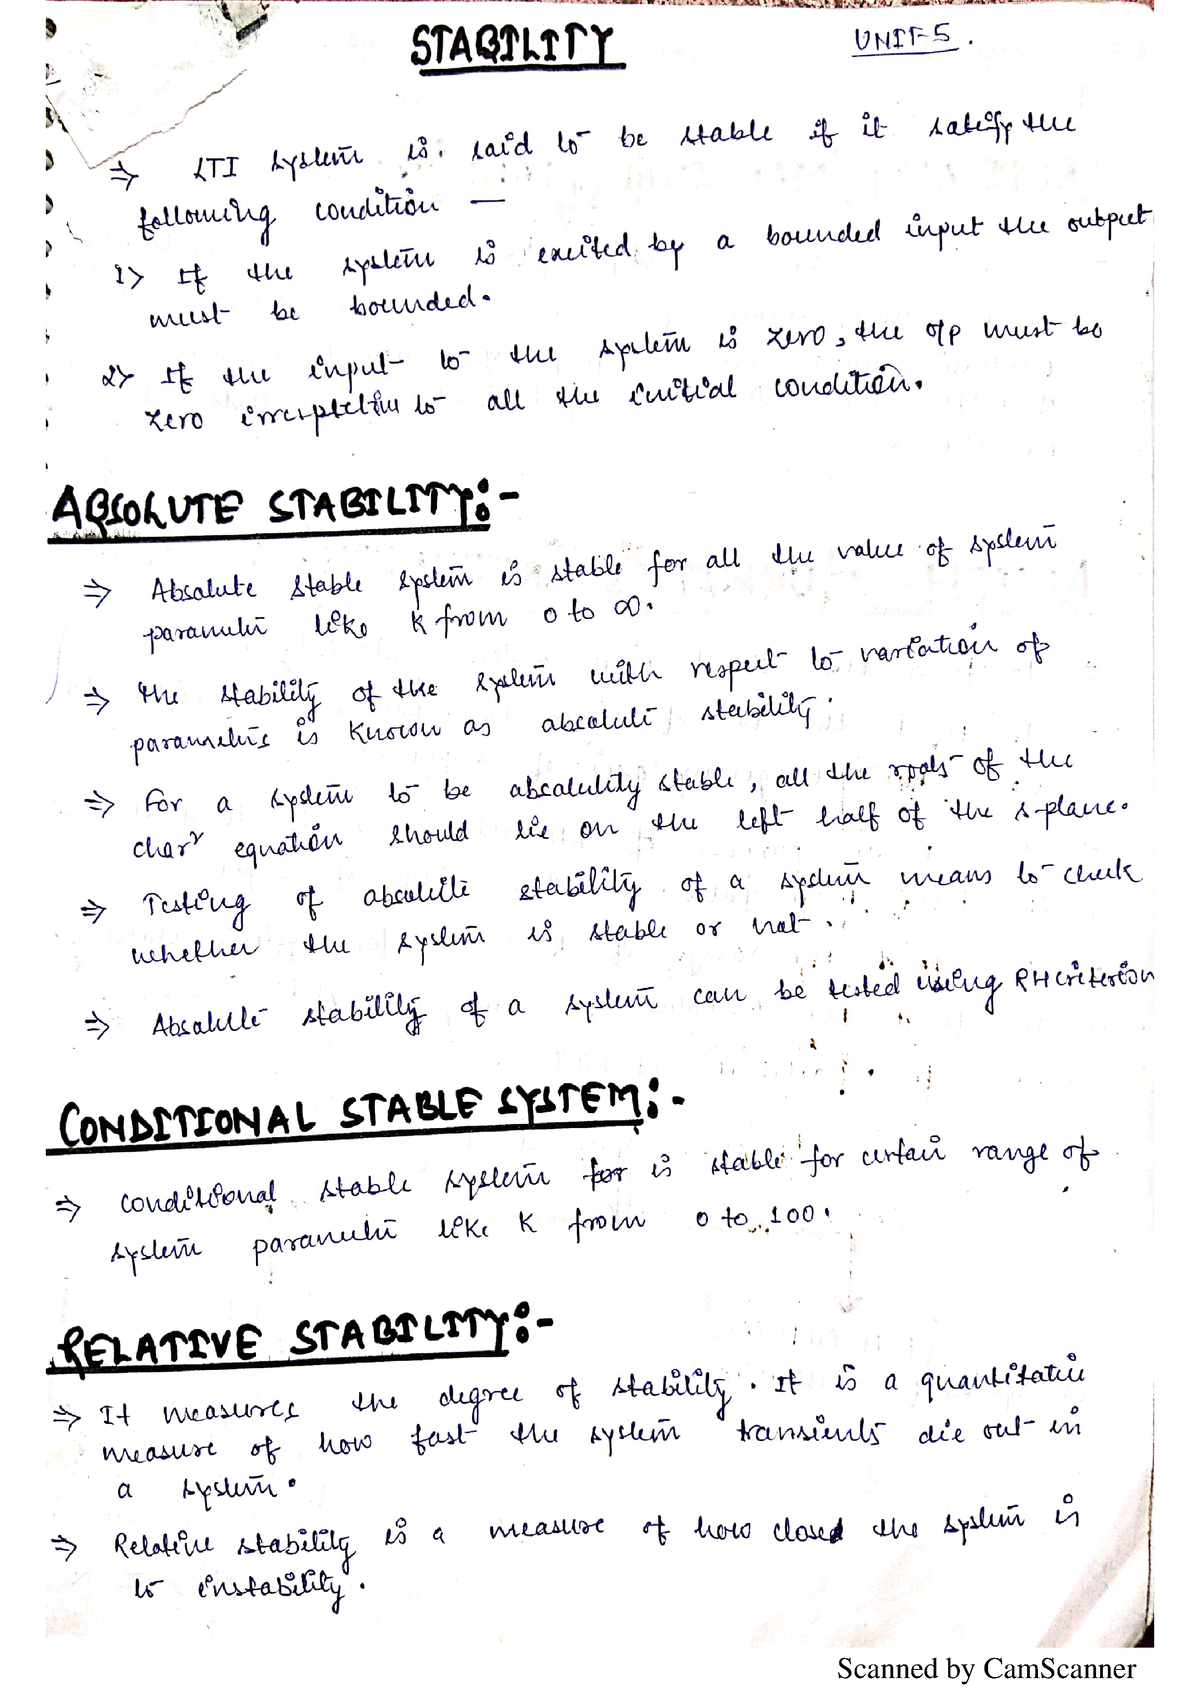 STABILITY
UNIT-5.
⇒ LTI system is said to be stable if it satisfy the
following condition —
1> If the system is excited by a bounded input the output
must be bounded.
2> If the input to the system is zero, the o/p must be
zero irrespective to all the initial condition.
ABSOLUTE STABILITY:-
⇒ Absolute stable system is stable for all the value of system
parameter like K from 0 to ∞.
⇒ The stability of the system with respect to variation of
parameters is known as absolute stability.
⇒ For a system to be absolutely stable, all the roots of the
charr equation should lie on the left half of the s-plane.
⇒ Testing of absolute stability of a system means to check
whether the system is stable or not.
⇒ Absolute stability of a system can be tested using RH criterion
CONDITIONAL STABLE SYSTEM:-
⇒ conditional stable system for is stable for certain range of
system parameter like K from 0 to 100.
RELATIVE STABILITY:-
⇒ It measures the degree of stability. It is a quantitative
measure of how fast the system transients die out in
a system.
⇒ Relative stability is a measure of how closed the system is
to instability.
Scanned by CamScanner